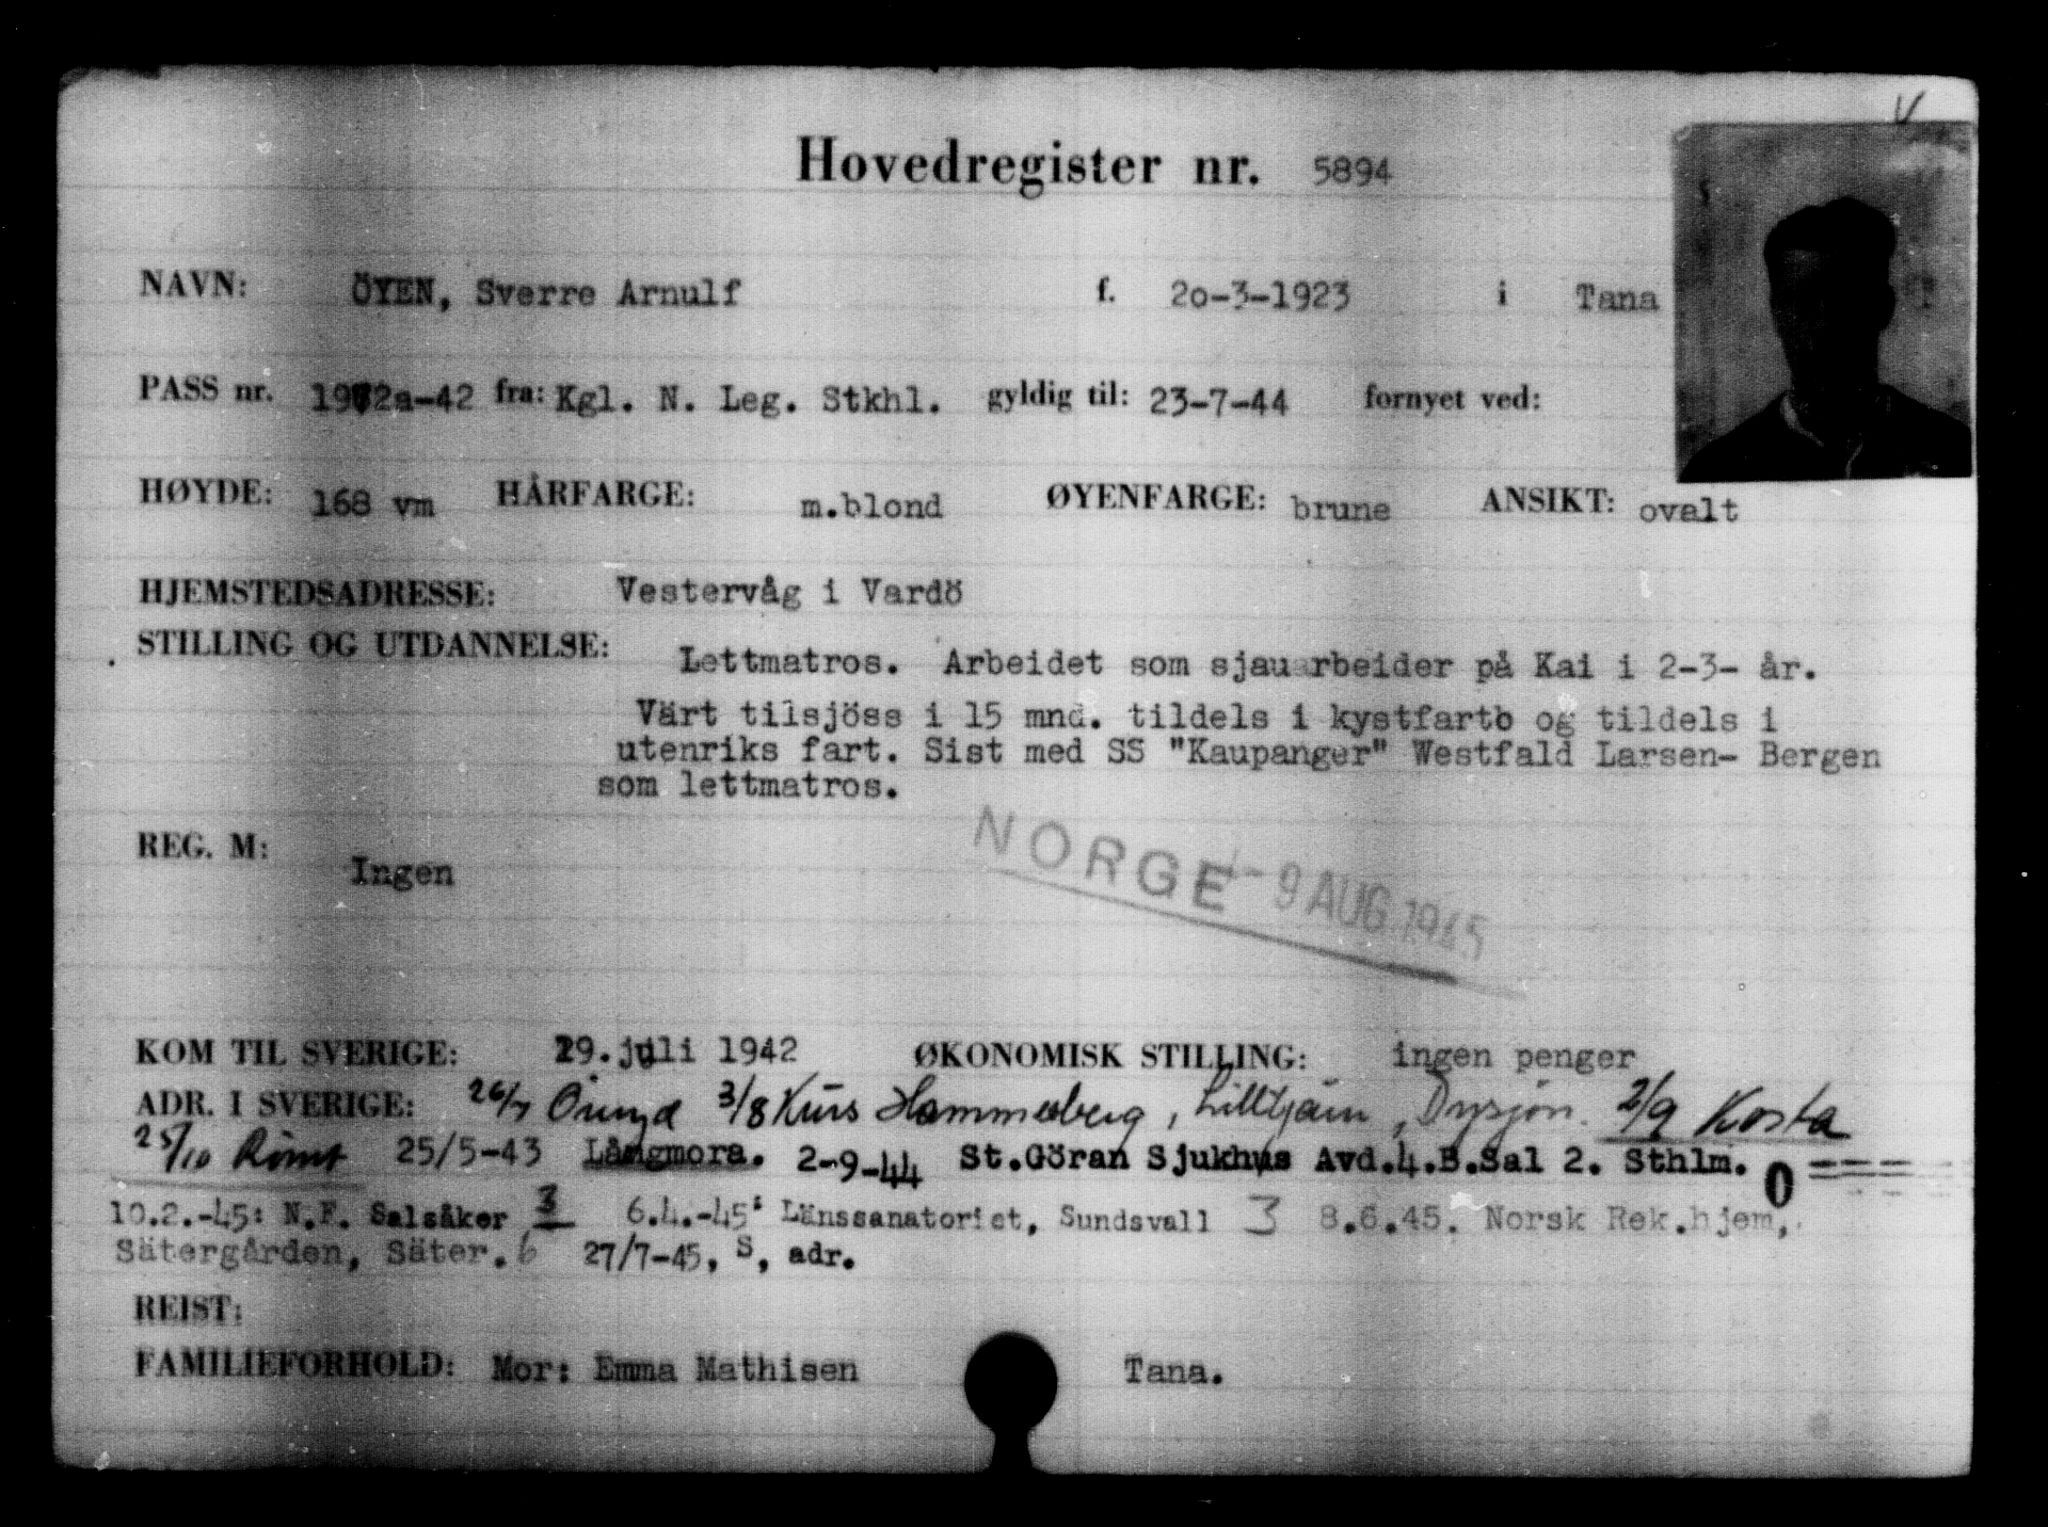 V
Hovedregister nr. 5894
NAVN: ÖYEN, Sverre Arnulf f. 2o-3-1923 i Tana
PASS nr. 1972a-42 fra: Kgl. N. Leg. Stkhl. gyldig til: 23-7-44 fornyet ved:
HØYDE: 168 vm HÅRFARGE: m.blond ØYENFARGE: brune ANSIKT: ovalt
HJEMSTEDSADRESSE: Vestervåg i Vardö
STILLING OG UTDANNELSE: Lettmatros. Arbeidet som sjauarbeider på Kai i 2-3- år.
Vært tilsjöss i 15 mnd. tildels i kystfarto og tildels i
utenriks fart. Sist med SS "Kaupanger" Westfald Larsen- Bergen
som lettmatros.
REG. M: Ingen
NORGE - 9 AUG. 1945
KOM TIL SVERIGE: 19.juli 1942 ØKONOMISK STILLING: ingen penger
ADR. I SVERIGE: 26/7 3/8 Kurs Hammerberg, Lilltjärn, Drysjön. 2/9 Kosta
25/10 Rømt 25/5-43 Långmora. 2-9-44 St.Göran Sjukhus Avd.4.B.Sal 2. Sthlm. 0 =====
10.2.-45: N.F. Salsåker 3 6.4.-45: Länssanatoriet, Sundsvall 3 8.6.45. Norsk Rek.hjem,
Sätergården, Säter. 6 27/7-45, S, adr.
REIST:
FAMILIEFORHOLD: Mor: Emma Mathisen Tana.